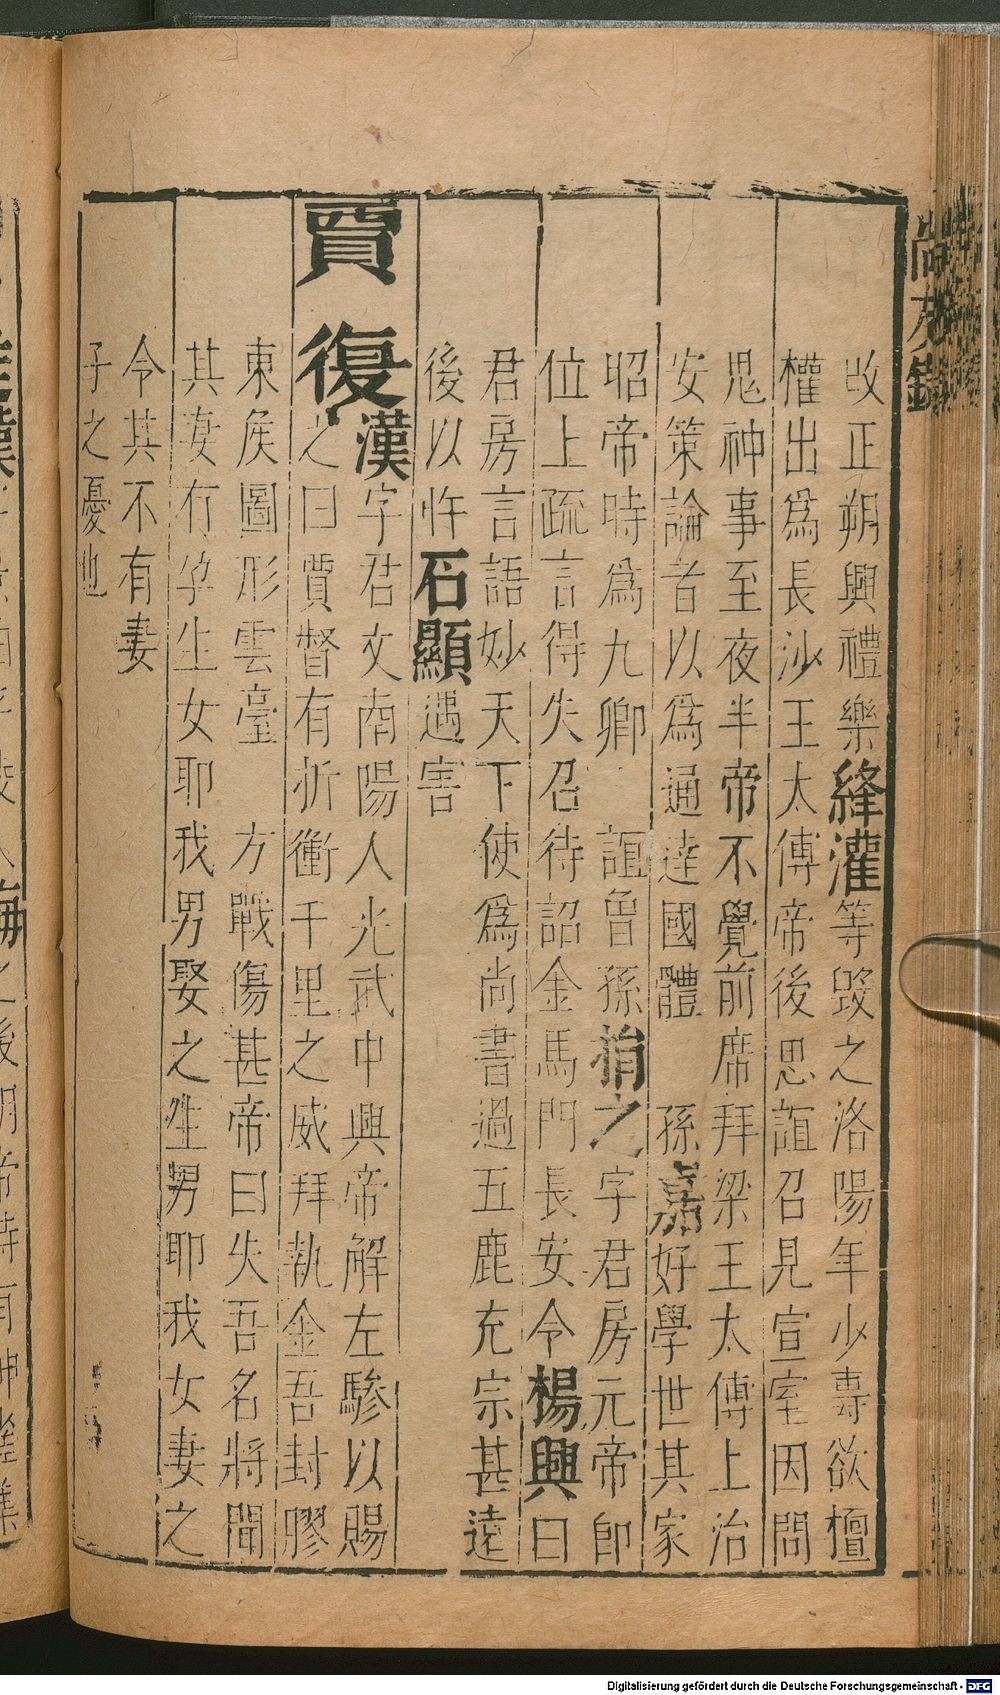 改正朔興禮樂絳灌等毀之洛陽年少專欲擅
權出為長沙王太傅帝後思誼召見宣室因問
鬼神事至夜半帝不覺前席拜梁王太傅上治
安策論者以為通達國體 孫嘉好學世其家
昭帝時為九卿 誼曾孫捐之字君房元帝即
位上疏言得失召待詔金馬門長安令楊興曰
君房言語妙天下使為尚書過五鹿充宗甚遠
後以忤石顯遇害
賈復漢字君文南陽人光武中興帝解左驂以賜
之曰賈督有折衝千里之威拜執金吾封膠
東侯圖形雲臺 方戰傷甚帝曰失吾名將聞
其妻有孕生女耶我男娶之生男耶我女妻之
令其不有妻
子之憂也
尚友錄
Digitalisierung gefördert durch die Deutsche Forschungsgemeinschaft - DFG